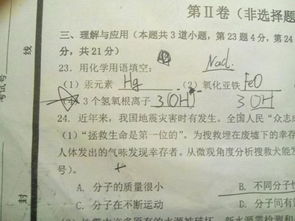 第Ⅱ卷(非选择题
三、理解与应用(本题共3道小题,第23题4分,第24
分,共21分)
23. 用化学用语填空: Nacl
(1) 汞元素 Hg (2) 氧化亚铁 FeO
3个氢氧根离子 3(OH) 3OH
24. 近年来,我国地质灾害时有发生。全国人民“众志成
(1)“拯救生命是第一位的”。为搜救埋在废墟下的幸存
人体发出的气味发现幸存者。从微观角度分析搜救犬能发
号)
A. 分子的质量很小 B. 不同分子
C. 分子在不断运动 D. 分子间有
考试号
线
封